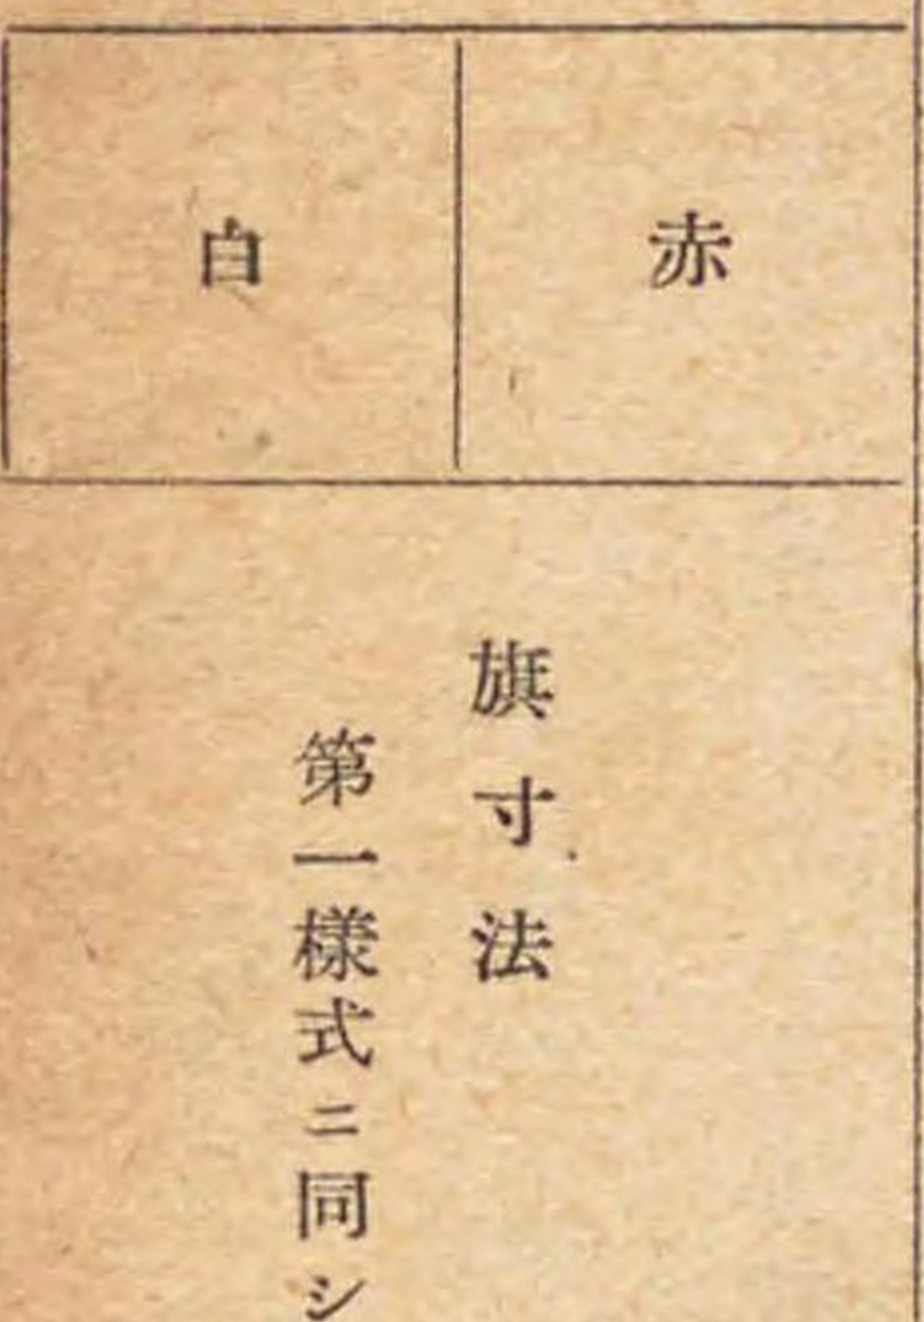 赤
白
旗寸法
第一様式ニ同シ